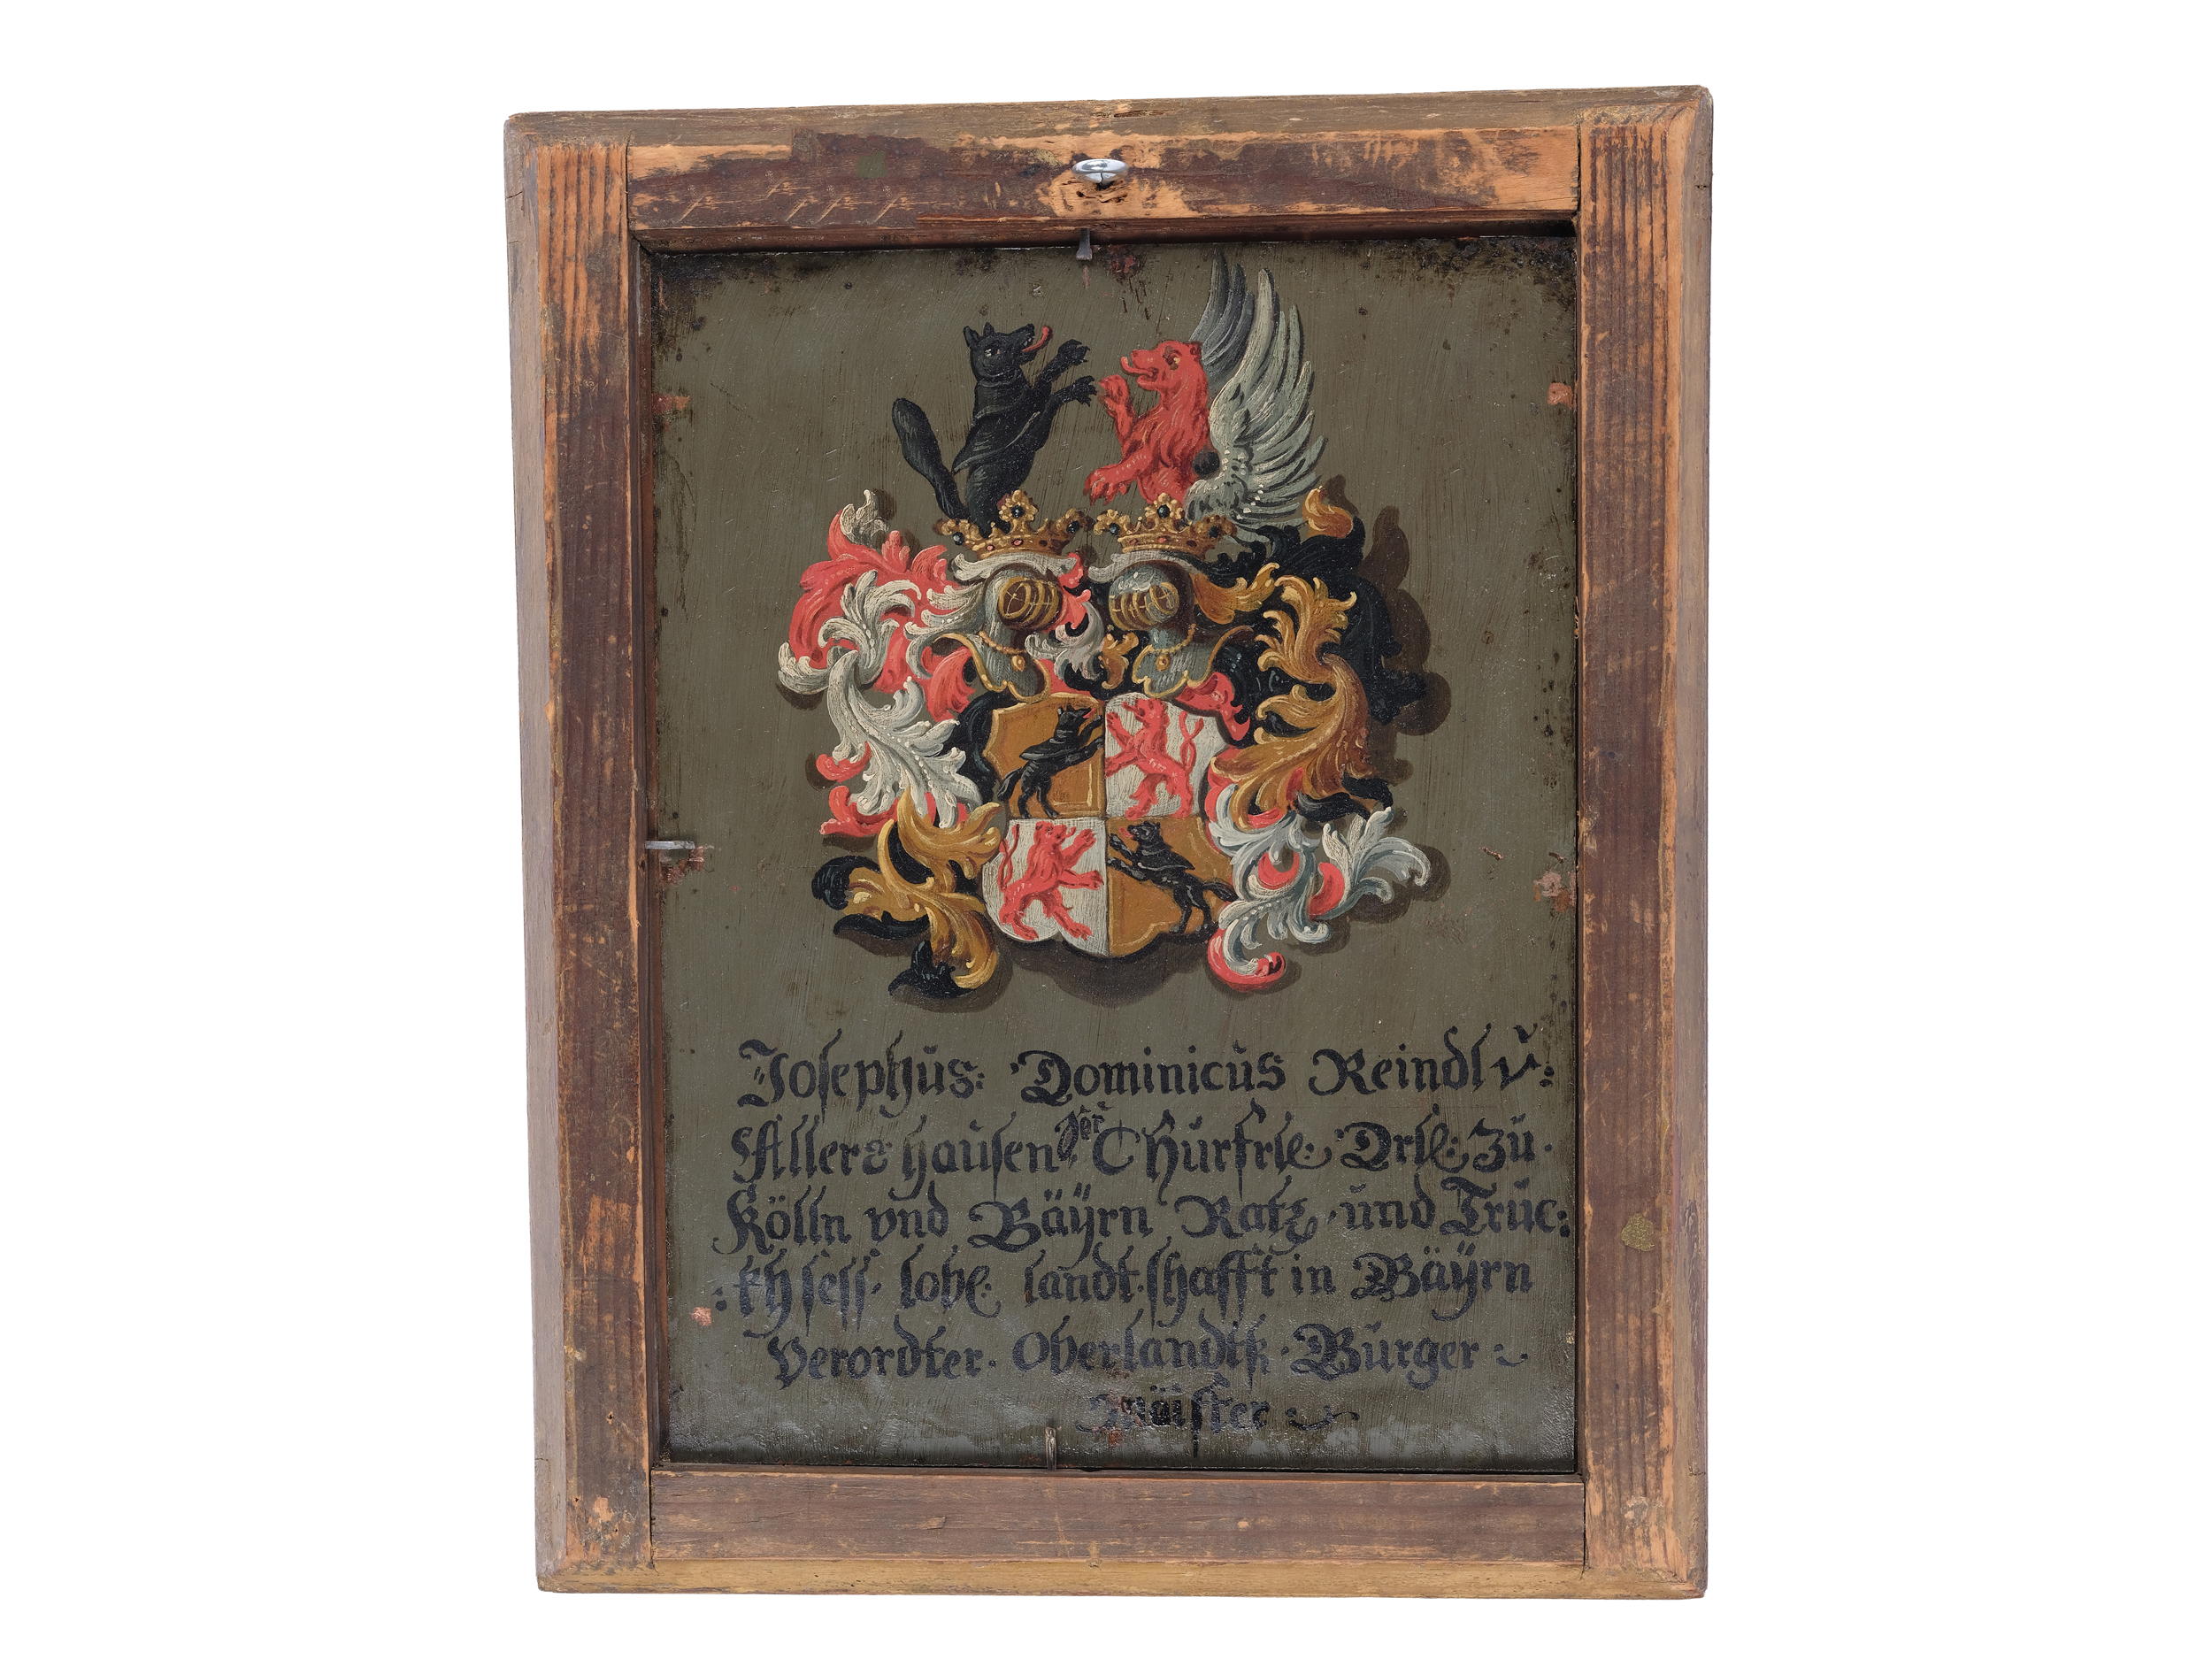 Josephus: Dominicus Reindl v:
Allershausen der Churfrle: Drle: zu.
Kölln vnd Bäyrn Ratz und Truc:
:khsess. lobl: landt.shafft in Bäyrn
Verordter. Oberlandtß. Burger
Mäister